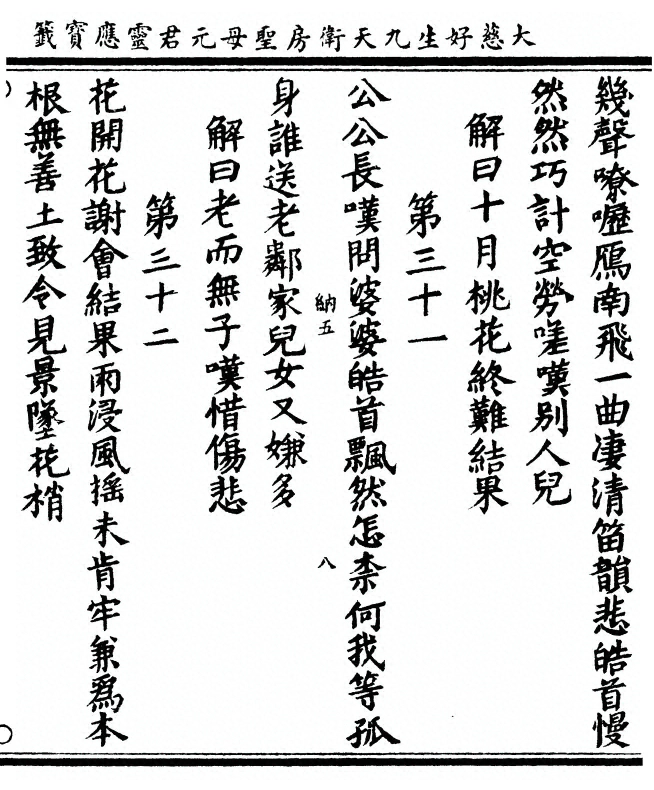 大慈好生九天衛房聖母元君靈應寶籤
幾聲嘹嚦鴈南飛一曲凄清笛韻悲皓首慢
然然巧計空勞嗟嘆別人兒
解曰十月桃花終難結果
第三十一
公公長嘆問婆婆皓首飄然怎柰何我等孤
納五
八
身誰送老鄰家兒女又嫌多
解曰老而無子嘆惜傷悲
第三十二
花開花謝會結果雨浸風搖未肯牢兼爲本
根無善土致令見景墜花梢